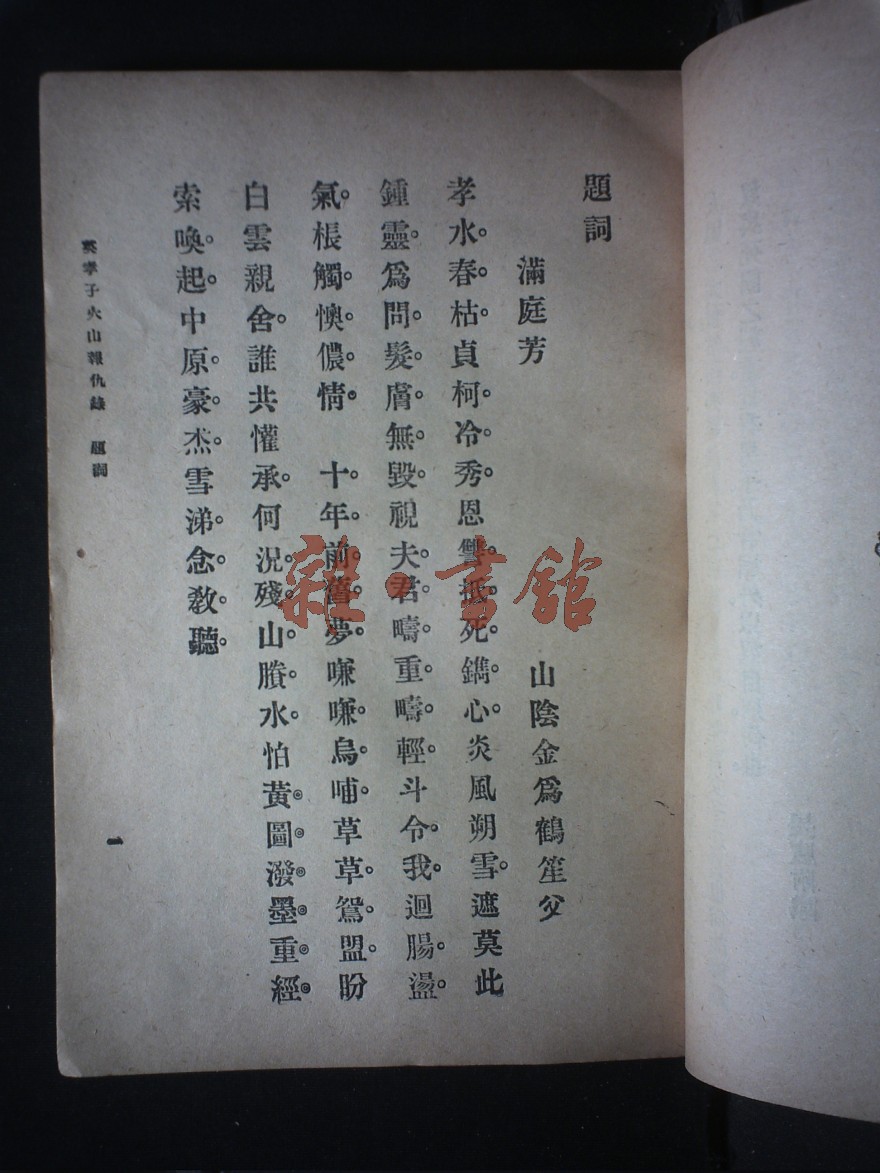 題詞
滿庭芳 山陰金爲鶴笙父
孝水。春。枯。貞柯冷。秀恩讐。抵。死。鐫心。炎風朔雪。遮莫此
鍾靈。爲問。髮。膚。無。毀。視夫。君。疇。重。疇。輕。斗令。我。迴腸。盪。
氣。棖觸。懊。儂。情。 十。年。前。舊。夢。嗛嗛。烏。哺。草草鴛。盟。盼
白雲親舍。誰共懽承。何況。殘。山。賸。水。怕黃◎圖◎潑◎墨◎重◎經◎
索喚。起。中原。豪。杰。雪涕。念。教。聽。
英孝子火山報仇錄 題詞
一
雜·書館